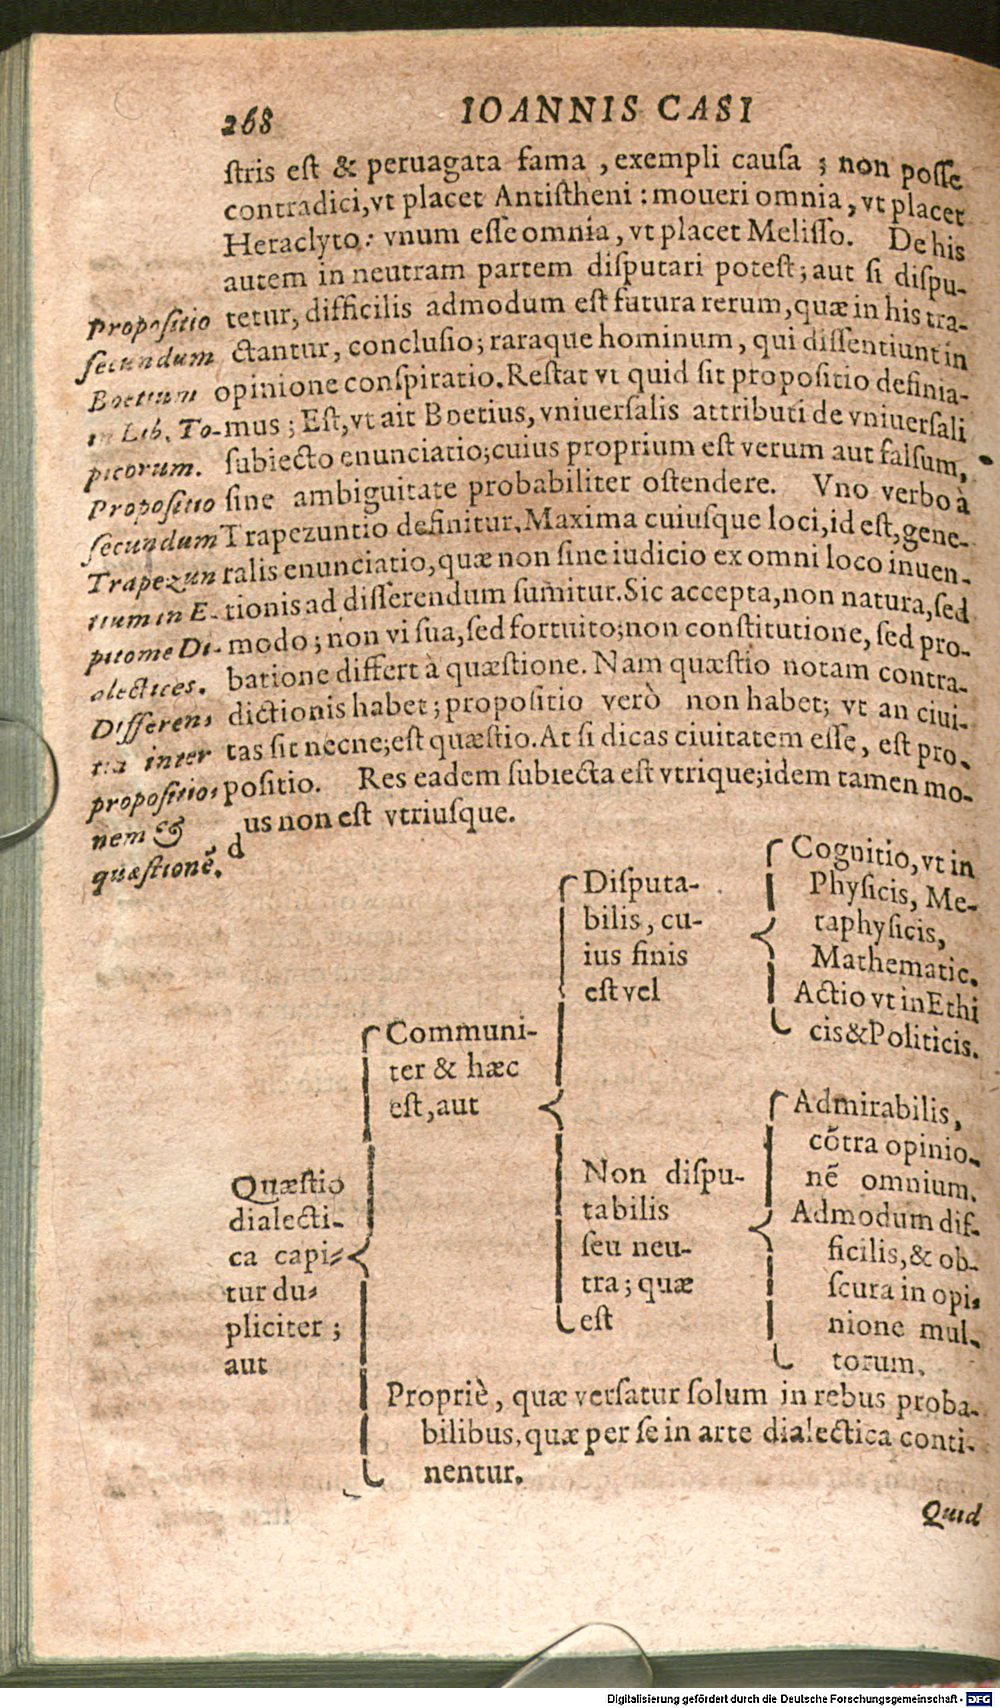 268
IOANNIS CASI
ſtris eſt & peruagata fama , exempli cauſa ; non poſſe
contradici,vt placet Antiſtheni : moueri omnia , vt placet
Heraclyto: vnum eſſe omnia , vt placet Meliſſo. De his
autem in neutram partem diſputari poteſt; aut ſi diſpu-
tetur, difficilis admodum eſt futura rerum,quæ in his tra-
ctantur, concluſio; raraque hominum, qui diſſentiunt in
opinione conſpiratio. Reſtat vt quid ſit propoſitio definia-
mus ; Eſt,vt ait Boetius, vniuerſalis attributi de vniuerſali
ſubiecto enunciatio;cuius proprium eſt verum aut falſum,
ſine ambiguitate probabiliter oſtendere. Vno verbo à
Trapezuntio definitur. Maxima cuiuſque loci, id eſt, gene-
ralis enunciatio, quæ non ſine iudicio ex omni loco inuen-
tionis ad differendum ſumitur. Sic accepta,non natura, ſed
modo ; non vi ſua, ſed fortuito;non conſtitutione, ſed pro-
batione differt à quæſtione. Nam quæſtio notam contra-
dictionis habet ; propoſitio verò non habet; vt an ciui-
tas ſit necne;eſt quæſtio. At ſi dicas ciuitatem eſſe, eſt pro-
poſitio. Res eadem ſubiecta eſt vtrique;idem tamen mo-
dus non eſt vtriuſque.
Propoſitio
ſecundum
Boetium
in Lib. To-
picorum.
Propoſitio
ſecundum
Trapezun
tium in E-
pitome Di-
alectices.
Differen-
tia inter
propoſitio-
nem &
quæſtionē.
Quæſtio
dialecti-
ca capi-
tur du-
pliciter ;
aut
Communi-
ter & hæc
eſt, aut
Diſputa-
bilis, cu-
ius finis
eſt vel
Cognitio, vt in
Phyſicis, Me-
taphyſicis,
Mathematic.
Actio vt in Ethi
cis & Politicis.
Non diſpu-
tabilis
ſeu neu-
tra ; quæ
eſt
Admirabilis,
cōtra opinio-
nē omnium.
Admodum dif-
ficilis, & ob-
ſcura in opi-
nione mul-
torum.
Propriè, quæ verſatur ſolum in rebus proba-
bilibus, quæ per ſe in arte dialectica conti-
nentur.
Quid
Digitalisierung gefördert durch die Deutsche Forschungsgemeinschaft - DFG